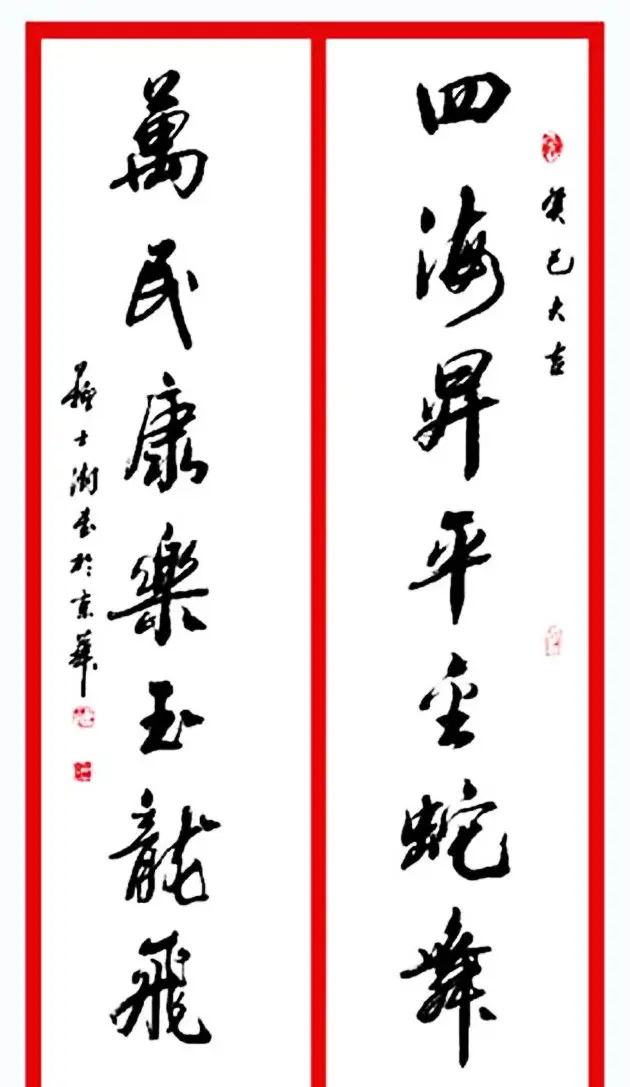 癸巳大吉
四海昇平金蛇舞
萬民康樂玉龍飛
士澍書於京華